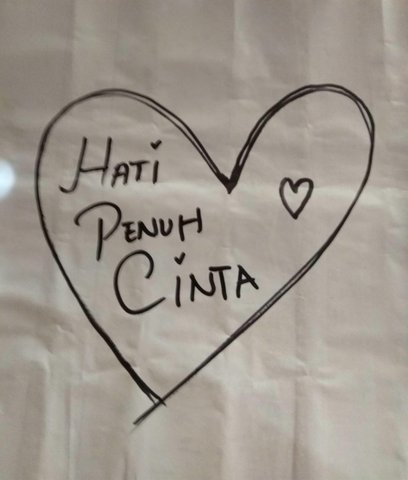 Hati
Penuh
Cinta